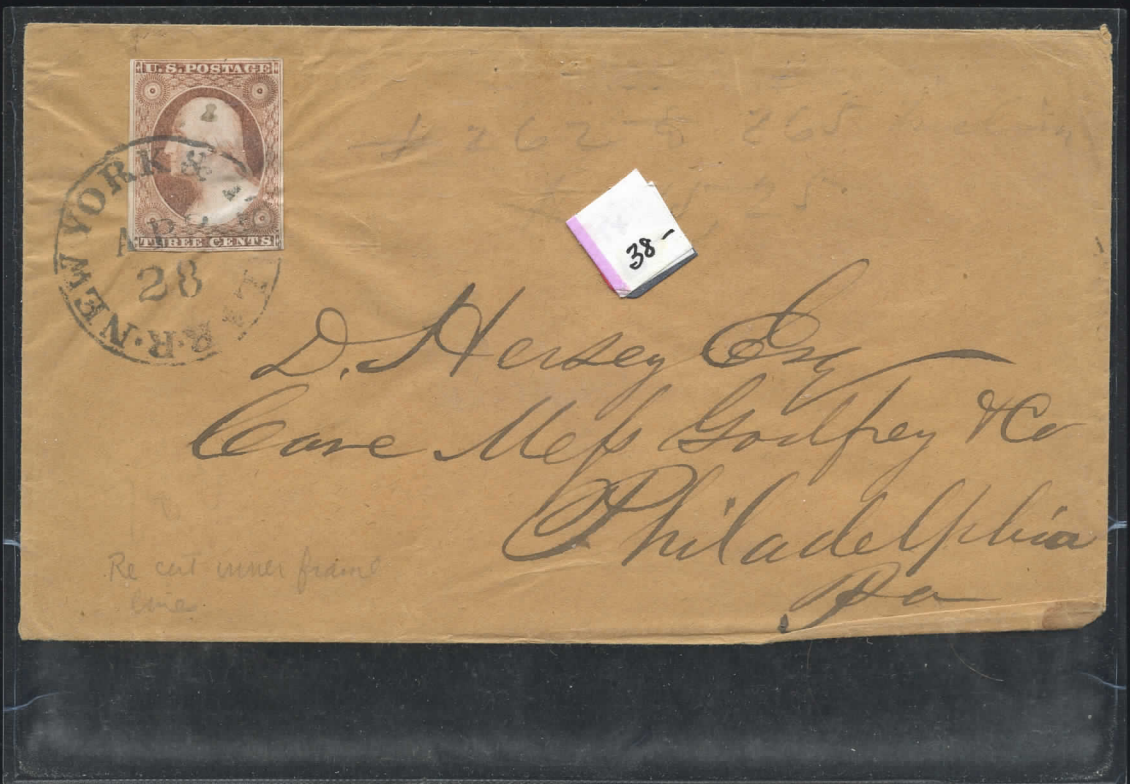 U.S. POSTAGE
THREE CENTS
NEW YORK & R.R.
APR
28
# 262 265
25
38-
D. Hersey Esq
Care Mess Godfrey & Co
Philadelphia
Pa
Re cut inner frame
line